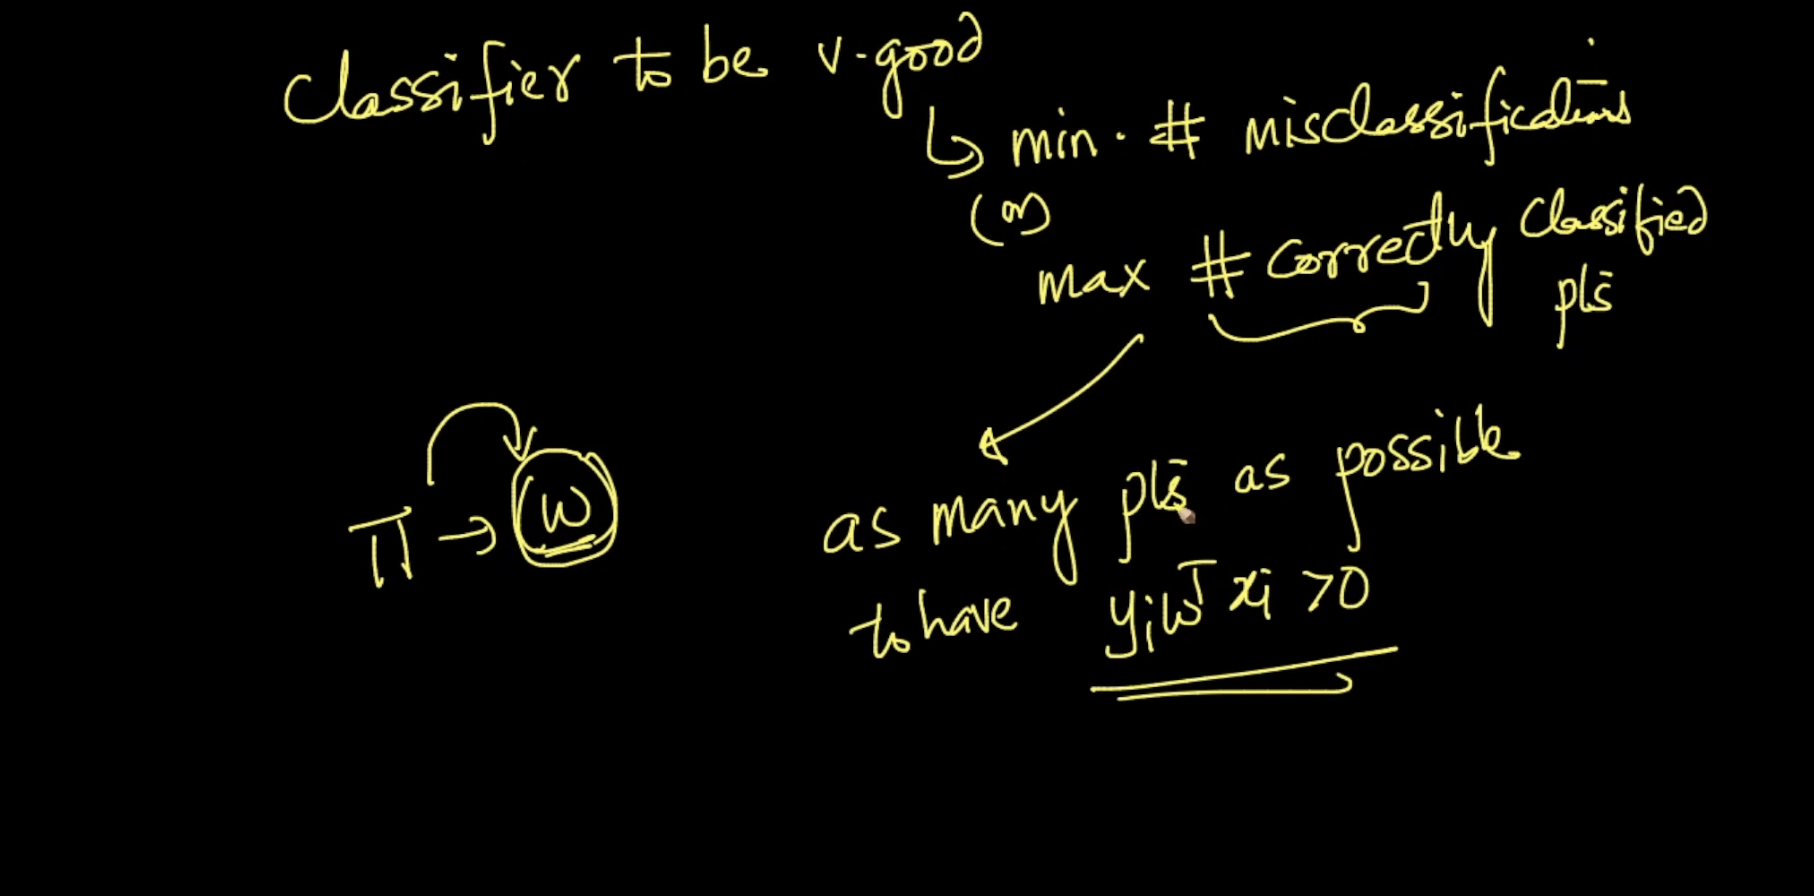 Classifier to be v.good
↳ min. # misclassifications
(or)
max # correctly classified
pts
as many pts as possible
to have yᵢwᵀxᵢ >0
π → w